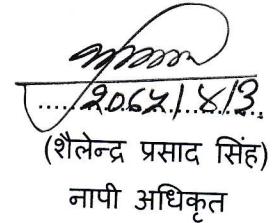 2067/4/3
(शैलेन्द्र प्रसाद सिंह)
नापी अधिकृत